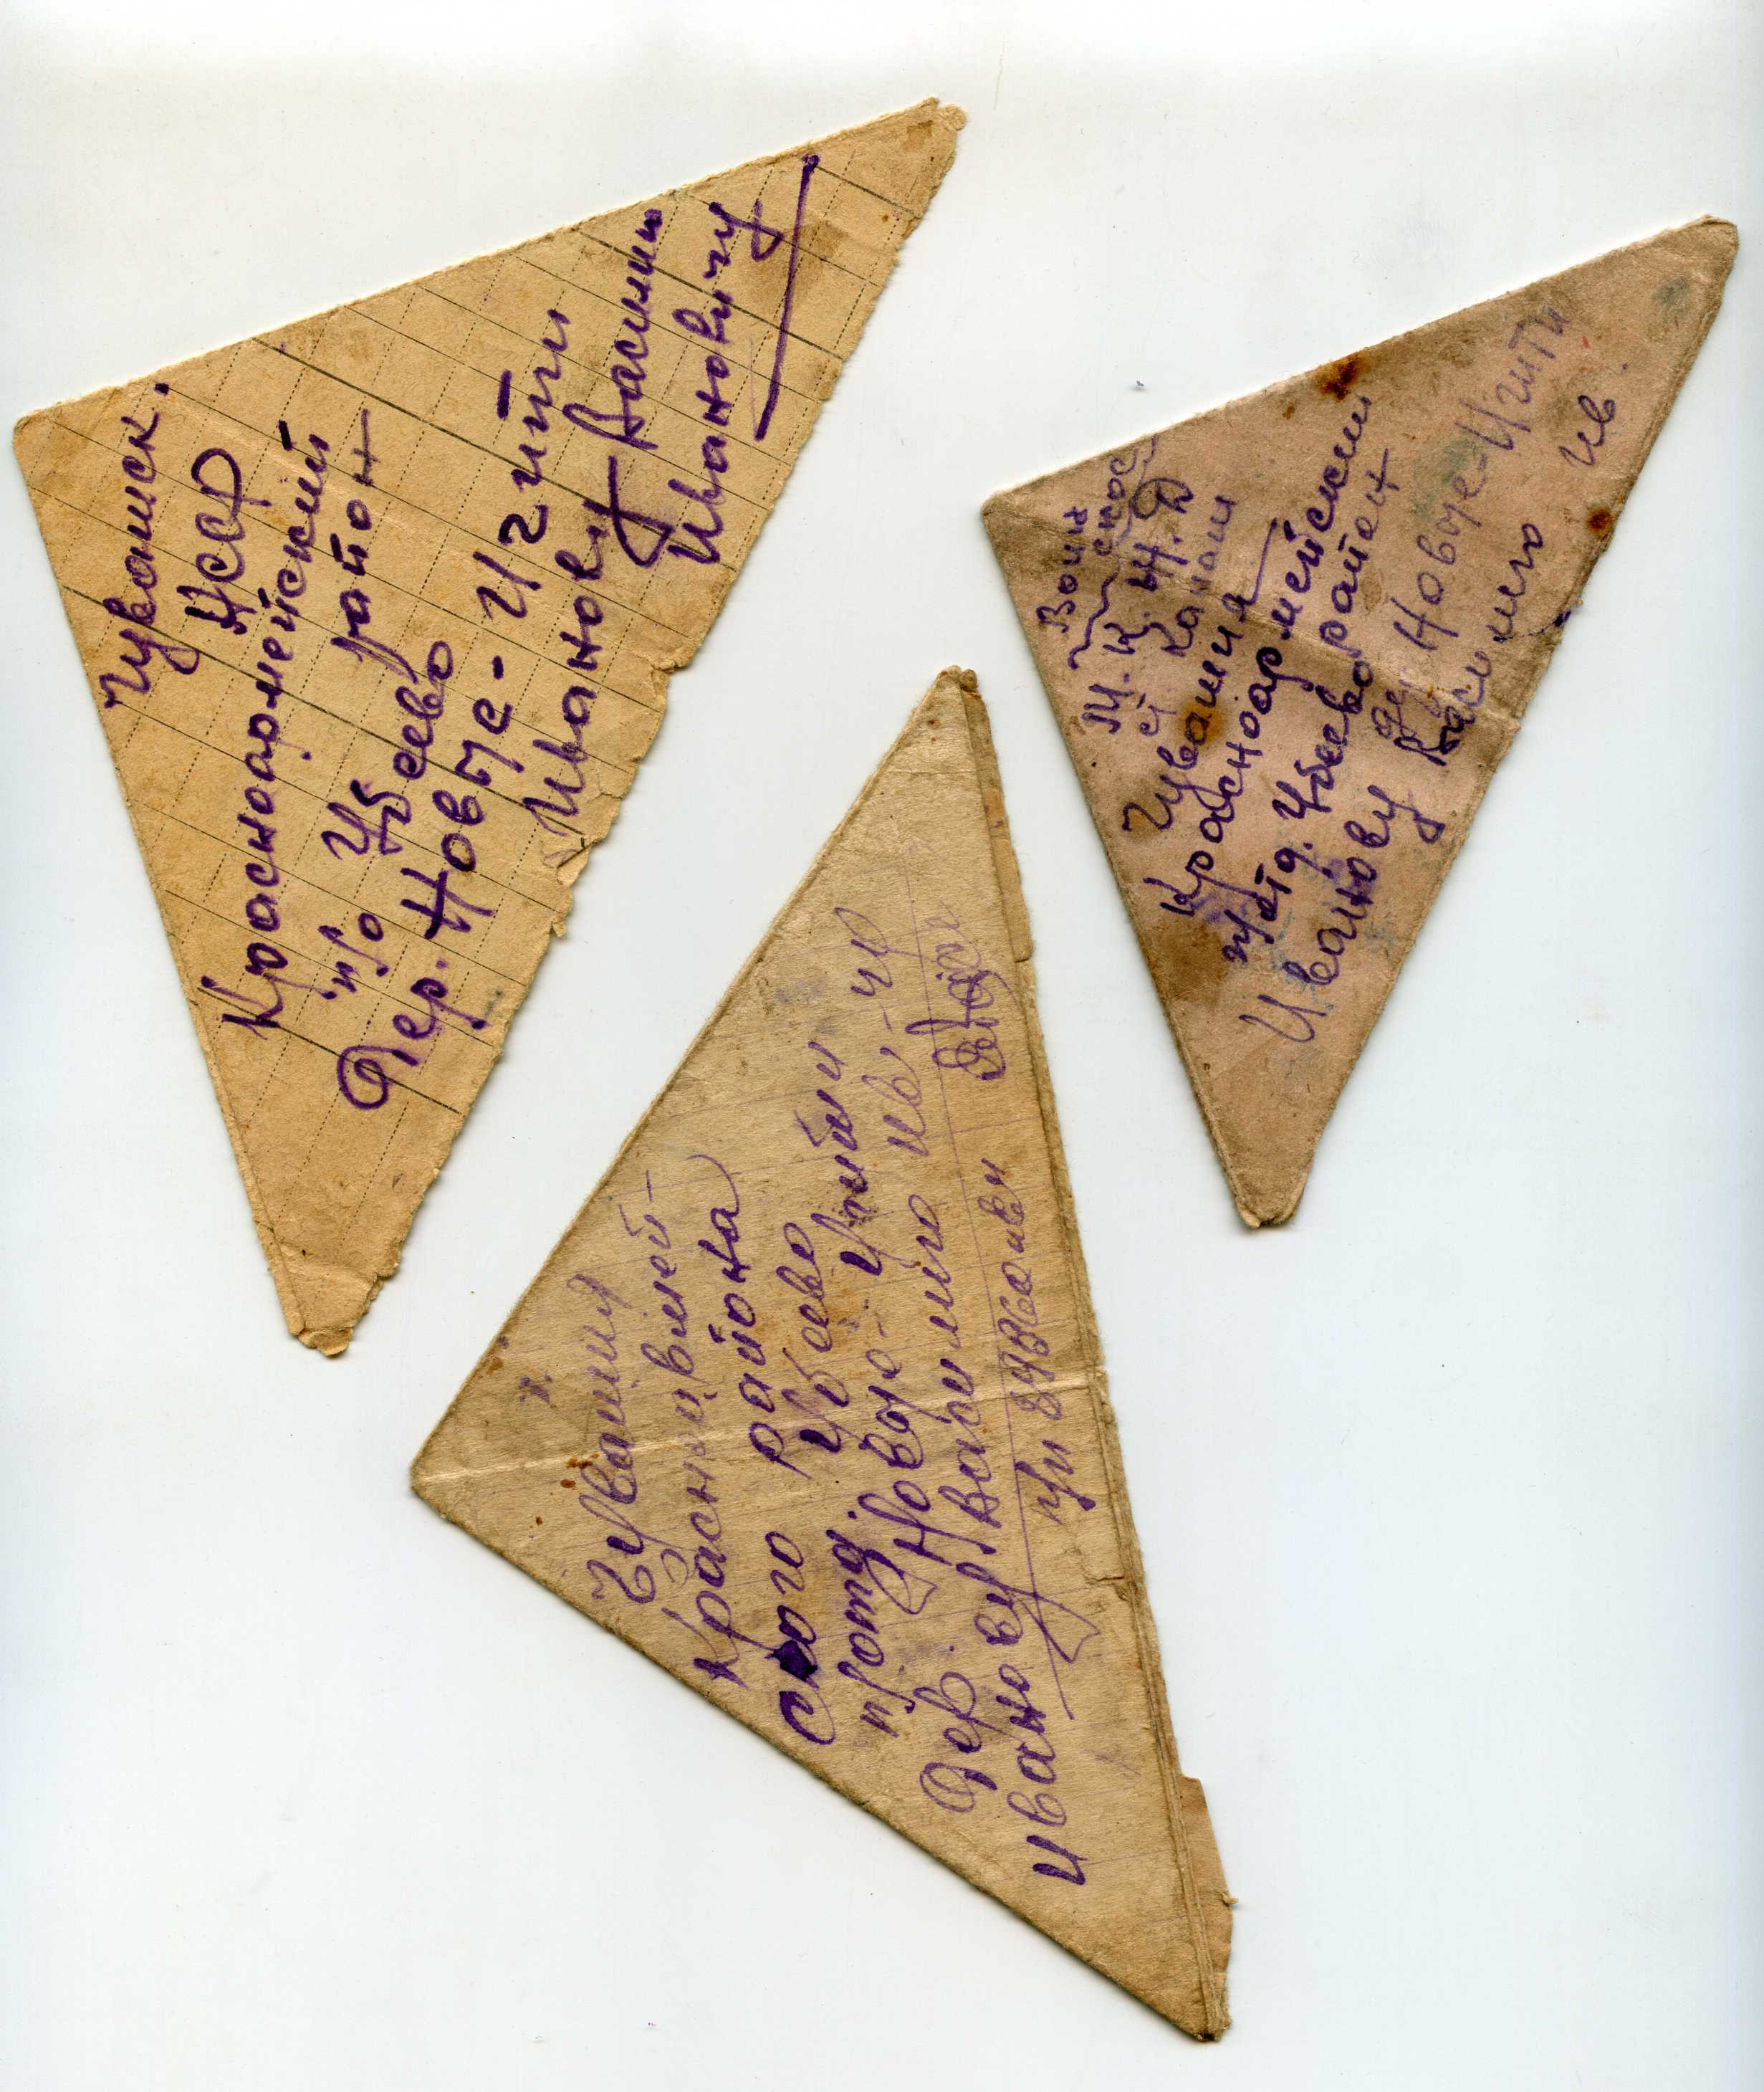 Чувашск.
АССР
Красноармейский
район
п/о Убеево
Дер. Новые-Игити
Иванову Василию
Ивановичу
М. К. Ж. Д
ст Канаш
Чувашия
Красноармейский
район
п/отд. Убеево
дер Новые-Игити
Иванову Василию Ив.
Чувашия
Красноармей-
ского района
п/отд. Убеево
Дер. Новые-Игити
Иванову Василию Ив-чу